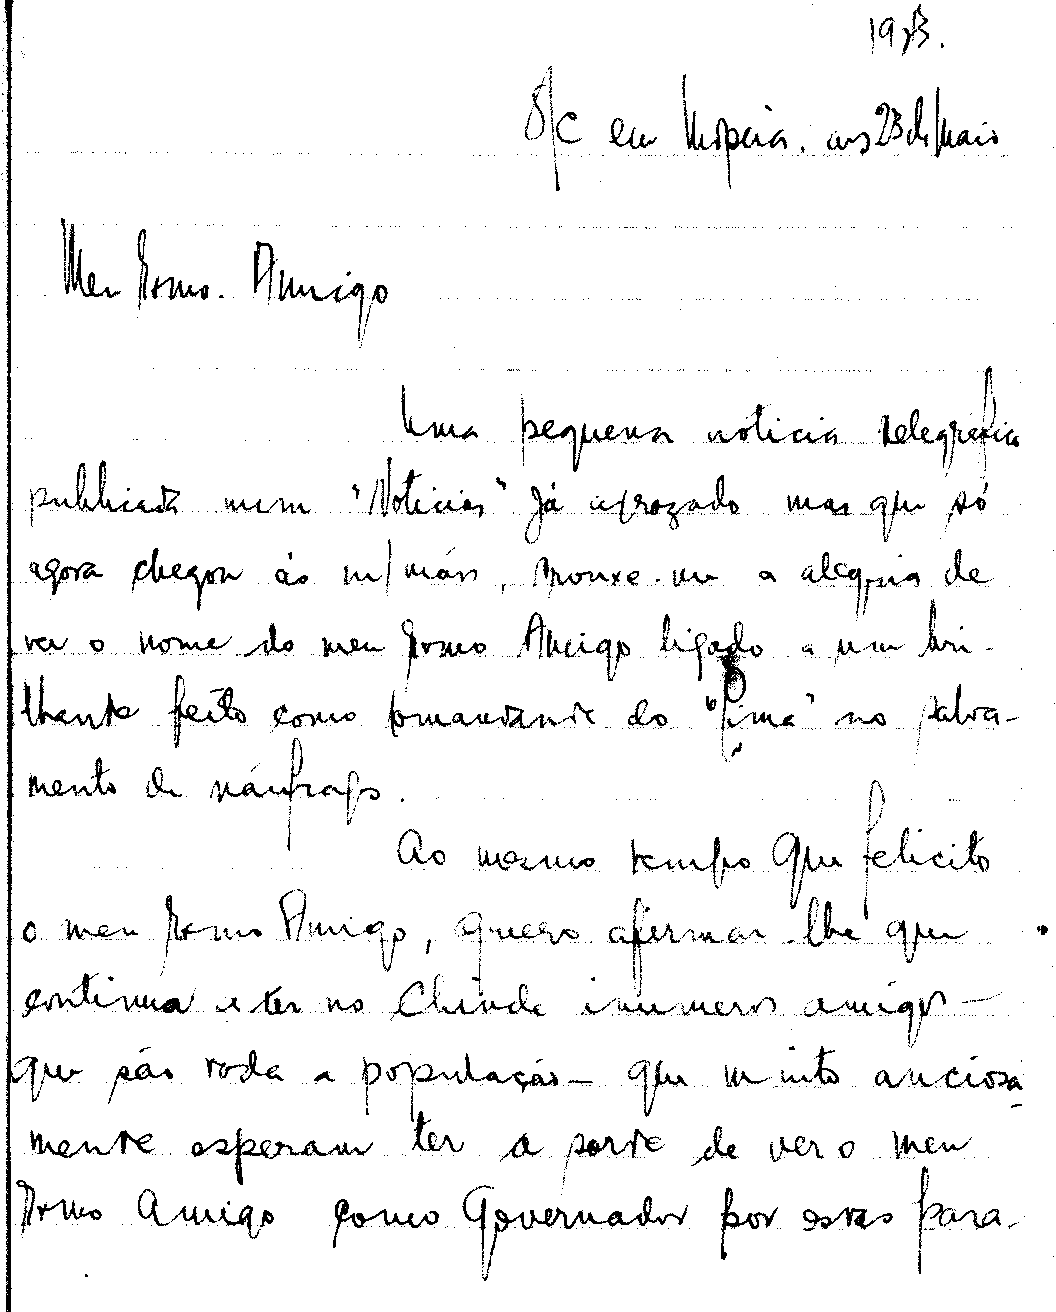 S/C em Mopeia. aos 23 de Maio
Meu Exmo. Amigo
Uma pequena noticia telegrafica
publicada num "Noticias" já atrazado mas que só
agora chegou ás m/mãos, trouxe-me a alegria de
ver o nome do meu Exmo Amigo ligado a um bri-
lhante feito como comandante do "Lima" no salva-
mento de náufragos.
Ao mesmo tempo que felicito
o meu Exmo Amigo, quero afirmar-lhe que
continua a ter no Chinde inumeros amigos -
que são toda a população - que muito anciosa
mente esperam ter a sorte de ver o meu
Exmo Amigo como Governador por estas para-